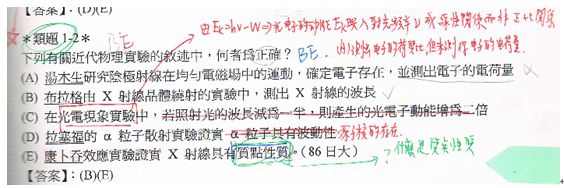 【答案】：(D)(E)
由Ek=hν-W⇒光電子的動能Ek與入射光頻率ν成線性關係而非正比關係
＊類題 1-2＊ BE
下列有關近代物理實驗的敘述中，何者為正確？ BE
(A) 湯木生研究陰極射線在均勻電磁場中的運動，確定電子存在，並測出電子的電荷量
(B) 布拉格由 X 射線晶體繞射的實驗中，測出 X 射線的波長
(C) 在光電現象實驗中，若照射光的波長減為一半，則產生的光電子動能增為二倍
(D) 拉塞福的 α 粒子散射實驗證實 α 粒子具有波動性 的存在.
(E) 康卜吞效應實驗證實 X 射線具有質點性質。(86 日大)
？什麼是質點性質
【答案】：(B)(E)